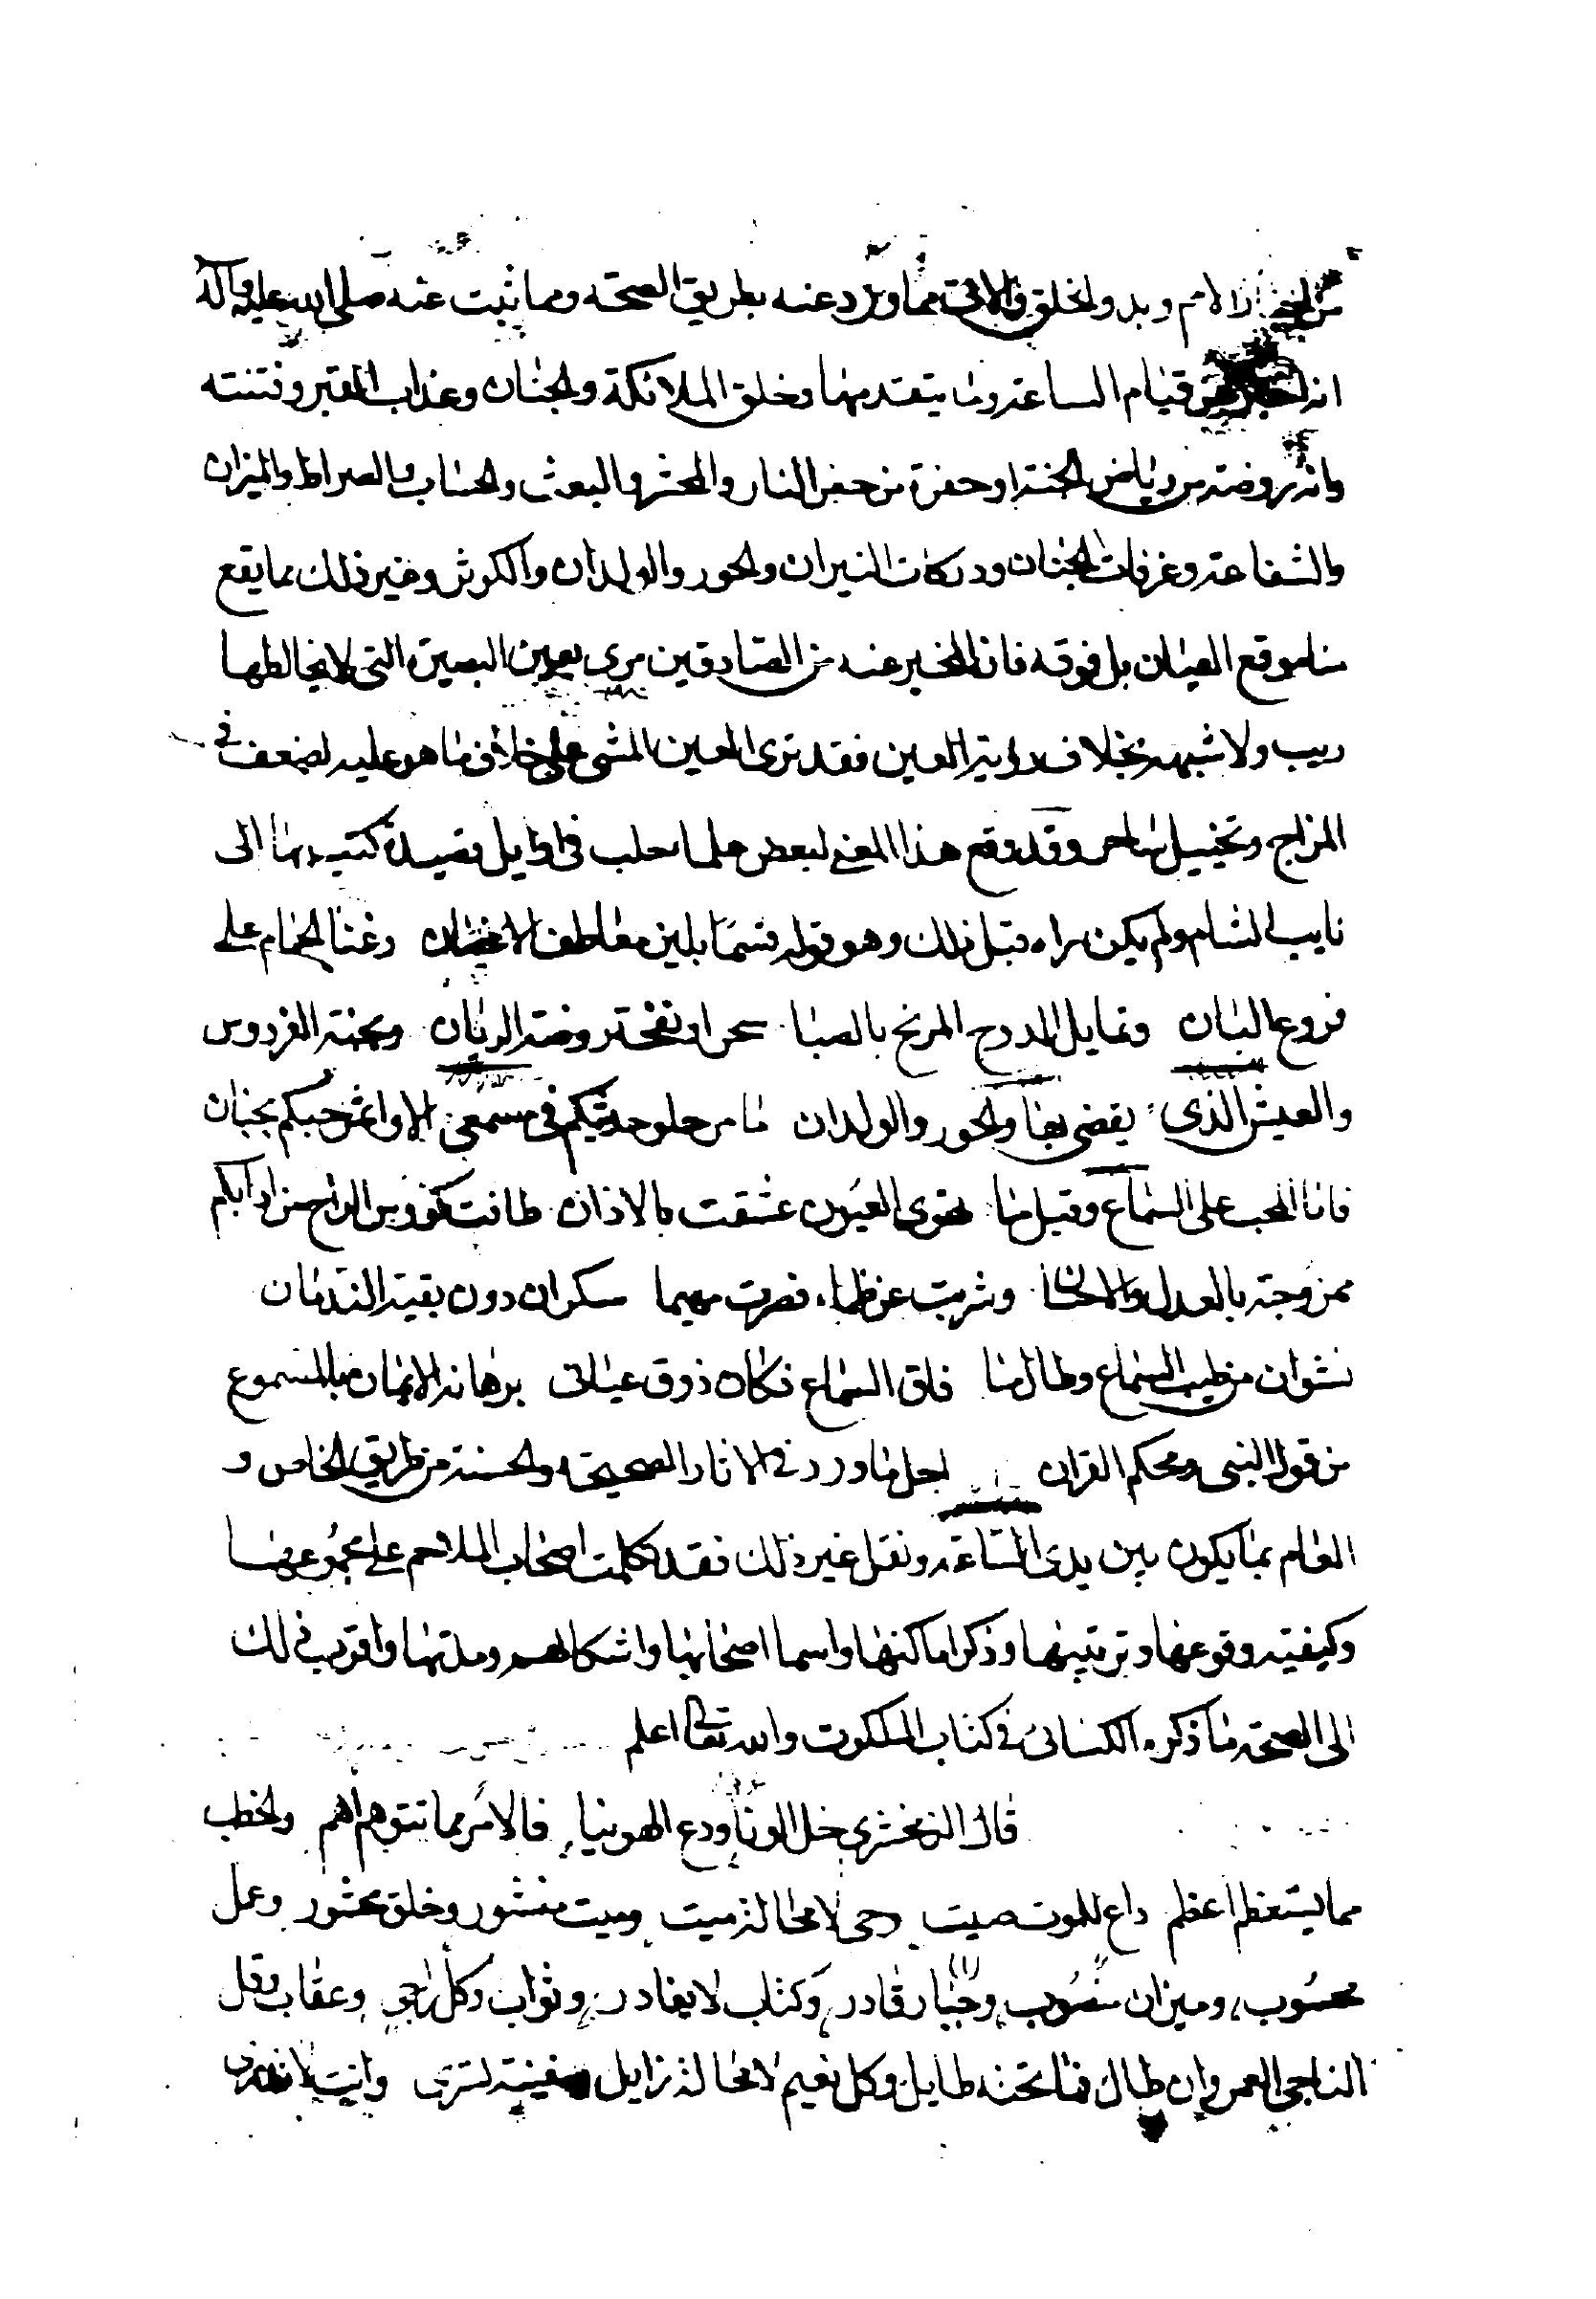 من اخبار الامم وبدو الخلق والافق مما ورد عنه بطريق الصحة ومما ثبت عنه صلى الله عليه وآله
انه اخبر عن قيام الساعة وما يتقدمها وخلق الملائكة والجنان وعذاب القبر وفتنته
وانه روضة من رياض الجنة او حفرة من حفر النار والمحشر والبعث والحساب والصراط والميزان
والشفاعة وغرفات الجنان ودركات النيران والحور والولدان والكوثر وغير ذلك مما يقع
منا موقع العيان بل فوقه فان المخبر عنه من الصادقين مرى بعين البصيرة التى لا يخالطها
ريب ولا شبهة بخلاف رؤية العين فقد ترى العين الشى على خلاف ما هو عليه لضعف فى
المزاج وتخييل ساحر وقد وقع هذا المعنى لبعض علماء حلب فى اوايل قصيدة كتب بها الى
نايب الشام ولم يكن راه قبل ذلك وهو قوله قسما بلين معاطف الاغصان وغنا الحمام على
فروع البان وتمايل الدوح المرنح بالصبا سحرا ونفحة روضة الريان وبجنة الفردوس
والعيش الذى يقضى بها والحور والولدان ما مر حلو حديثكم فى مسمعى الا واثمر حبكم بجنان
فانا المحب على السماع وقبل ما تهوى العيون عشقت بالاذان طافت كؤوس الراح من ادابكم
ممزوجة بالعدل والاحسان وشربت عن ظماء فصرت مهيما سكران دون بقية الندمان
نشوان من طيب السماع وطال ما فاق السماع فكان ذوق عيانى برهانه الايمان بالمسموع
من قول النبى ومحكم القران اجل ما ورد فى الاثار الصحيحة والحسنة من طريق الخاص و
العام بما يكون بين يدى الساعة ونقل غير ذلك فقد تكلمت اصحاب الملاحم على مجموعها
وكيفية وقوعها وترتيبها وذكر اماكنها واسما اصحابها واشكالهم ومدتها واقرب ذلك
الى الصحة ما ذكره الكسائى فى كتاب الملكوت والله تعالى اعلم
قال الزمخشرى خل الونا ودع الهوينا فالامر مما تتوهم اهم والخطب
مما يستعظم اعظم داع للموت صيت وحى لا محالة ميت وميت منشور وخلق محشور وعمل
محسوب وميزان منصوب وجبار قادر وكتاب لا يغادر وثواب وكل راجى وعقاب وقل
الناجى العمر وان طال فما تحته طايل وكل نعيم لا محالة زايل سفينة تسرى وانت لا تدرى